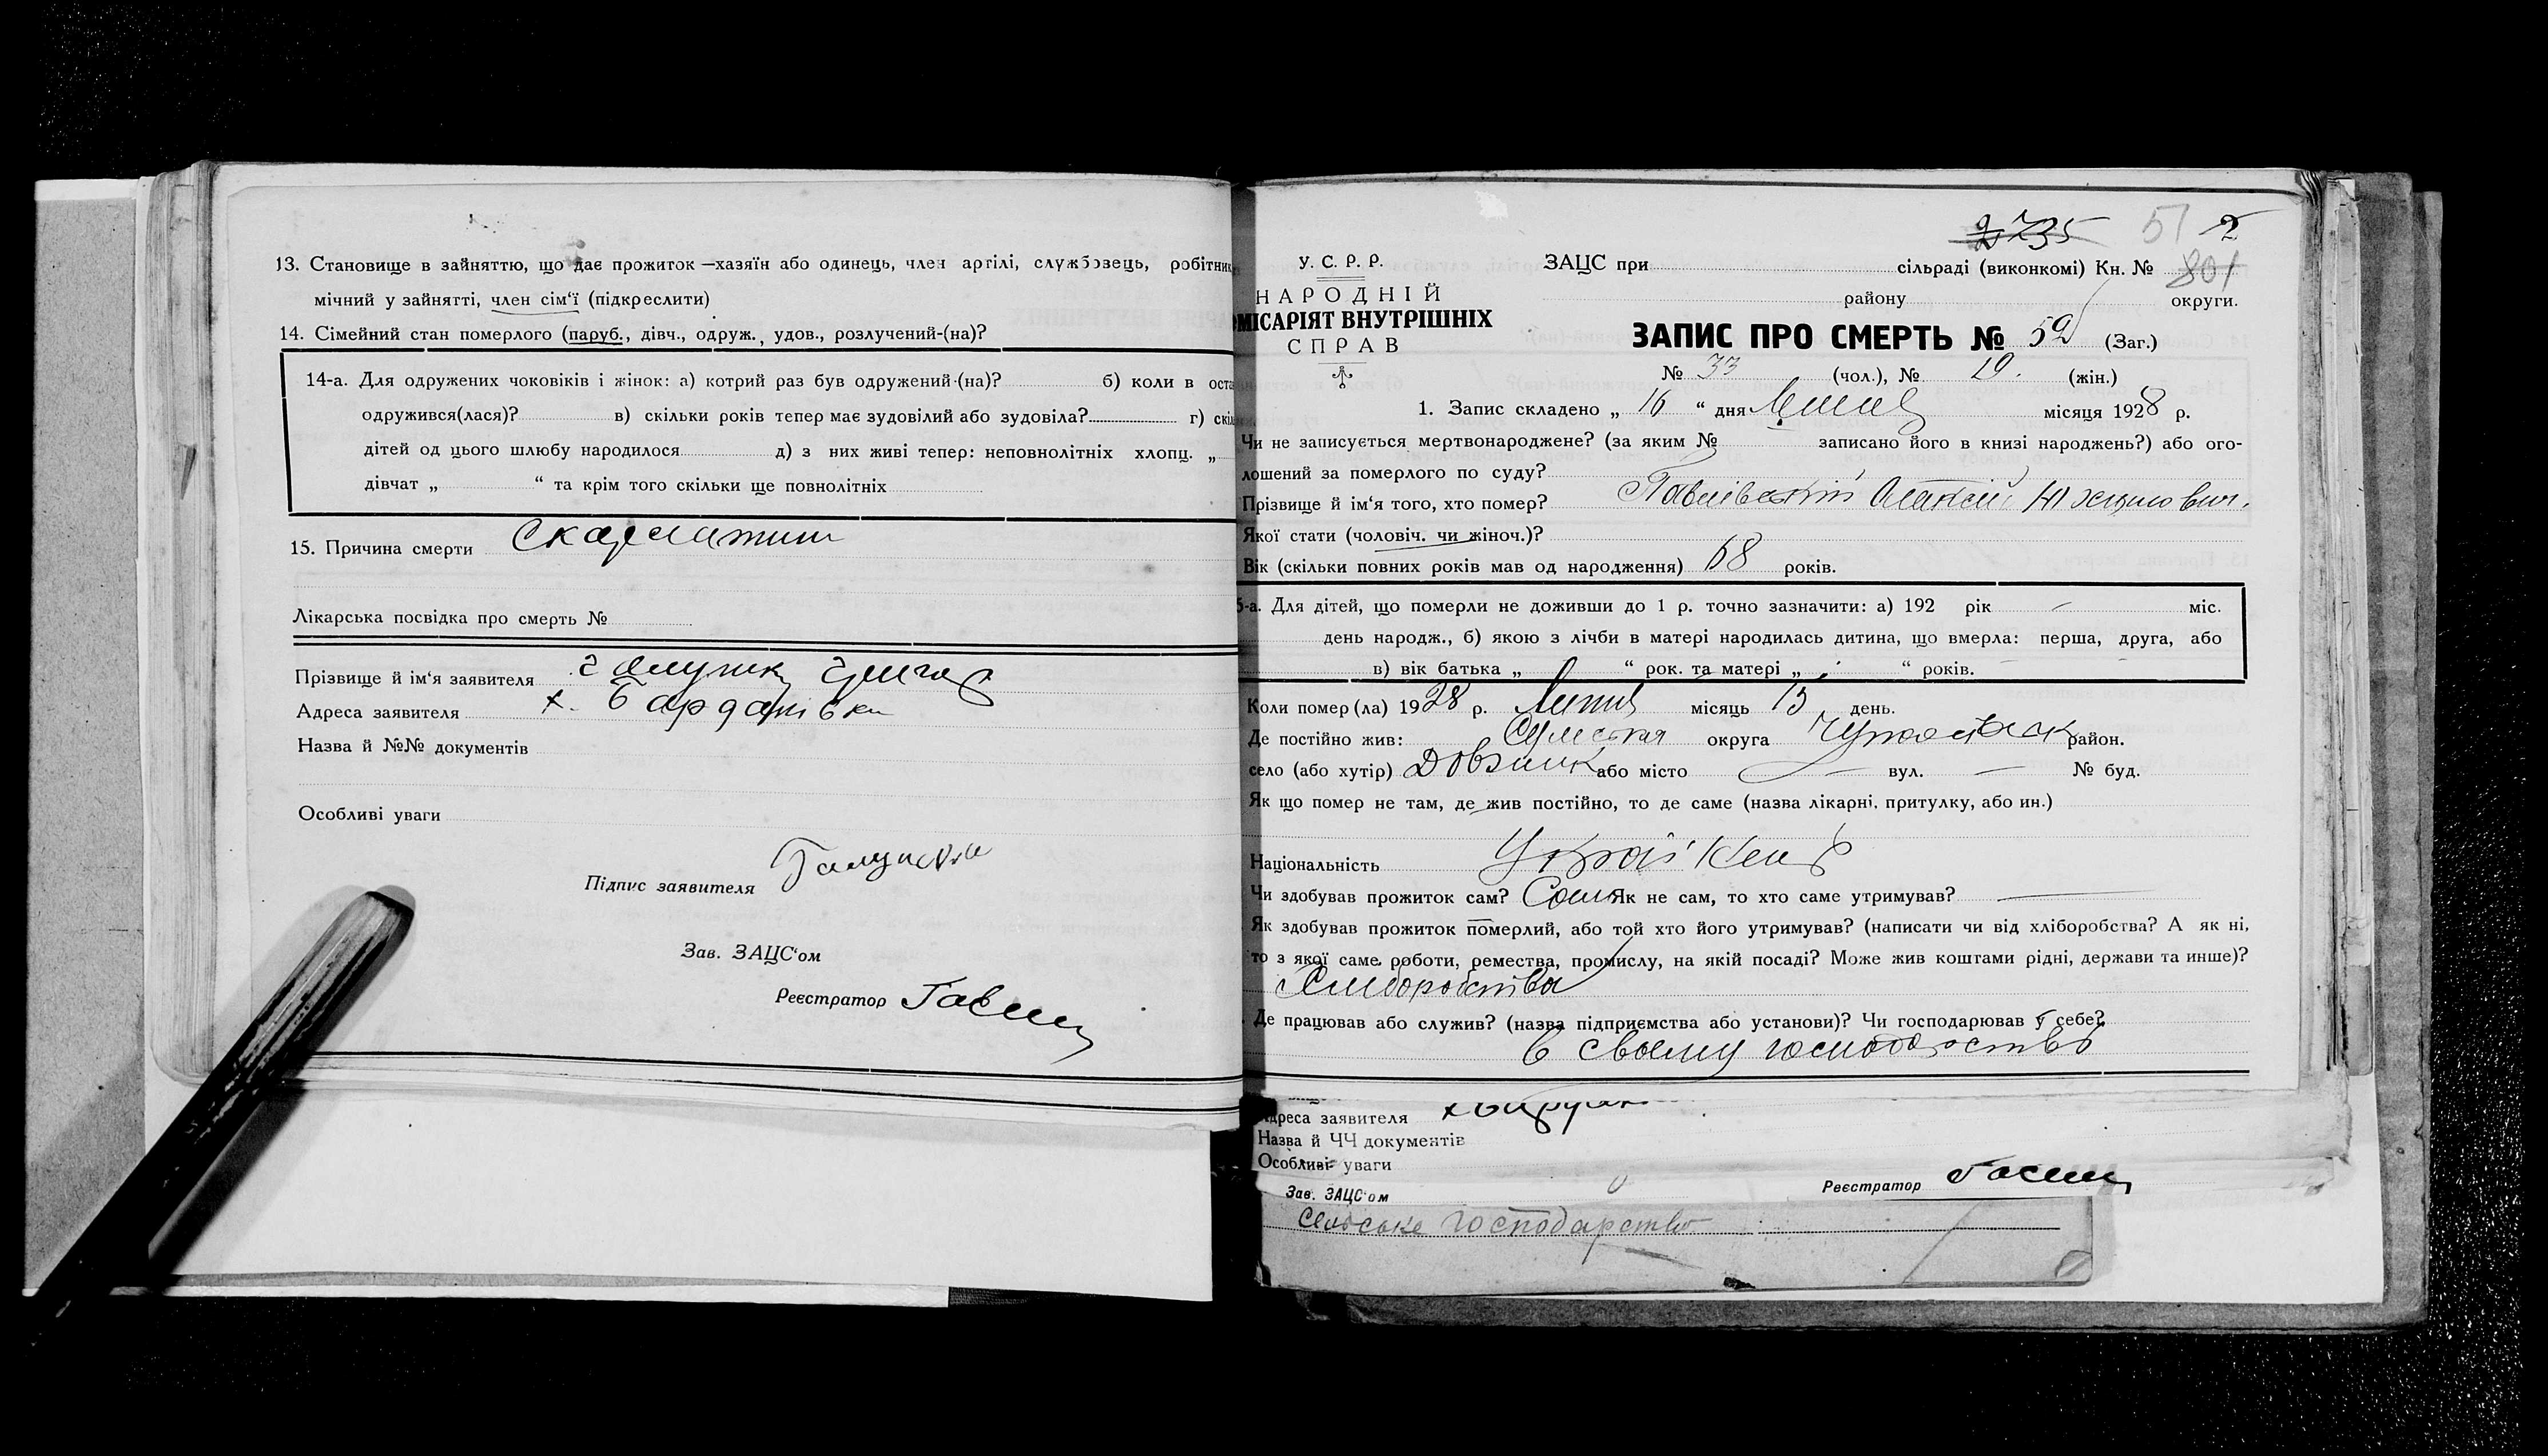 13. Становище в зайняттю, що дає прожиток —хазяїн або одинець, член артілі, службовець, робітник,
мічний у зайнятті, член сім‘ї (підкреслити)
14. Сімейний стан померлого (паруб., дівч., одруж., удов., розлучений-(на)?
14-а. Для одружених чоковіків і жінок: а) котрий раз був одружений-(на)? б) коли в оста
одружився(лася)? в) скільки років тепер має зудовілий або зудовіла? г) скіл
дітей од цього шлюбу народилося д) з них живі тепер: неповнолітніх хлопц. „
дівчат „ “ та крім того скільки ще повнолітніх
15. Причина смерти Скарлатини
Лікарська посвідка про смерть №
Прізвище й ім‘я заявителя
Адреса заявителя х.
Назва й №№ документів
Особливі уваги
Підпис заявителя
Зав. ЗАЦС‘ом
Реєстратор
2735 51 2
У. С. Р. Р.
НАРОДНІЙ
МІСАРІЯТ ВНУТРІШНІХ
СПРАВ
ЗАЦС при сільраді (виконкомі) Кн. № 801
району округи.
ЗАПИС ПРО СМЕРТЬ № 52 (Заг.)
№ 33 (чол.), № 19. (жін.)
1. Запис складено „ 16 “ дня Липня місяця 1928 р.
Чи не записується мертвонароджене? (за яким № записано його в книзі народжень?) або ого-
лошений за померлого по суду?
Прізвище й ім‘я того, хто помер? Павлівський
Якої стати (чоловіч. чи жіноч.)?
Вік (скільки повних років мав од народження) 68 років.
5-а. Для дітей, що померли не доживши до 1 р. точно зазначити: а) 192 рік — міс.
день народж., б) якою з лічби в матері народилась дитина, що вмерла: перша, друга, або
в) вік батька „ “ рок. та матері „ “ років.
Коли помер(ла) 1928 р. Липня місяць 15 день.
Де постійно жив: Сумская округа район.
село (або хутір) Довжик або місто — вул. — № буд.
Як що помер не там, де жив постійно, то де саме (назва лікарні, притулку, або ин.)
Національність
Чи здобував прожиток сам? Сам Як не сам, то хто саме утримував? —
Як здобував прожиток померлий, або той хто його утримував? (написати чи від хліборобства? А як ні,
то з якої саме роботи, ремества, промислу, на якій посаді? Може жив коштами рідні, держави та инше)?
Хліборобства
Де працював або служив? (назва підприємства або установи)? Чи господарював у себе?
в своєму господарстві
Адреса заявителя
Назва й ЧЧ документів
Особливі уваги
Зав. ЗАЦС‘ом
Реєстратор
сільське господарство